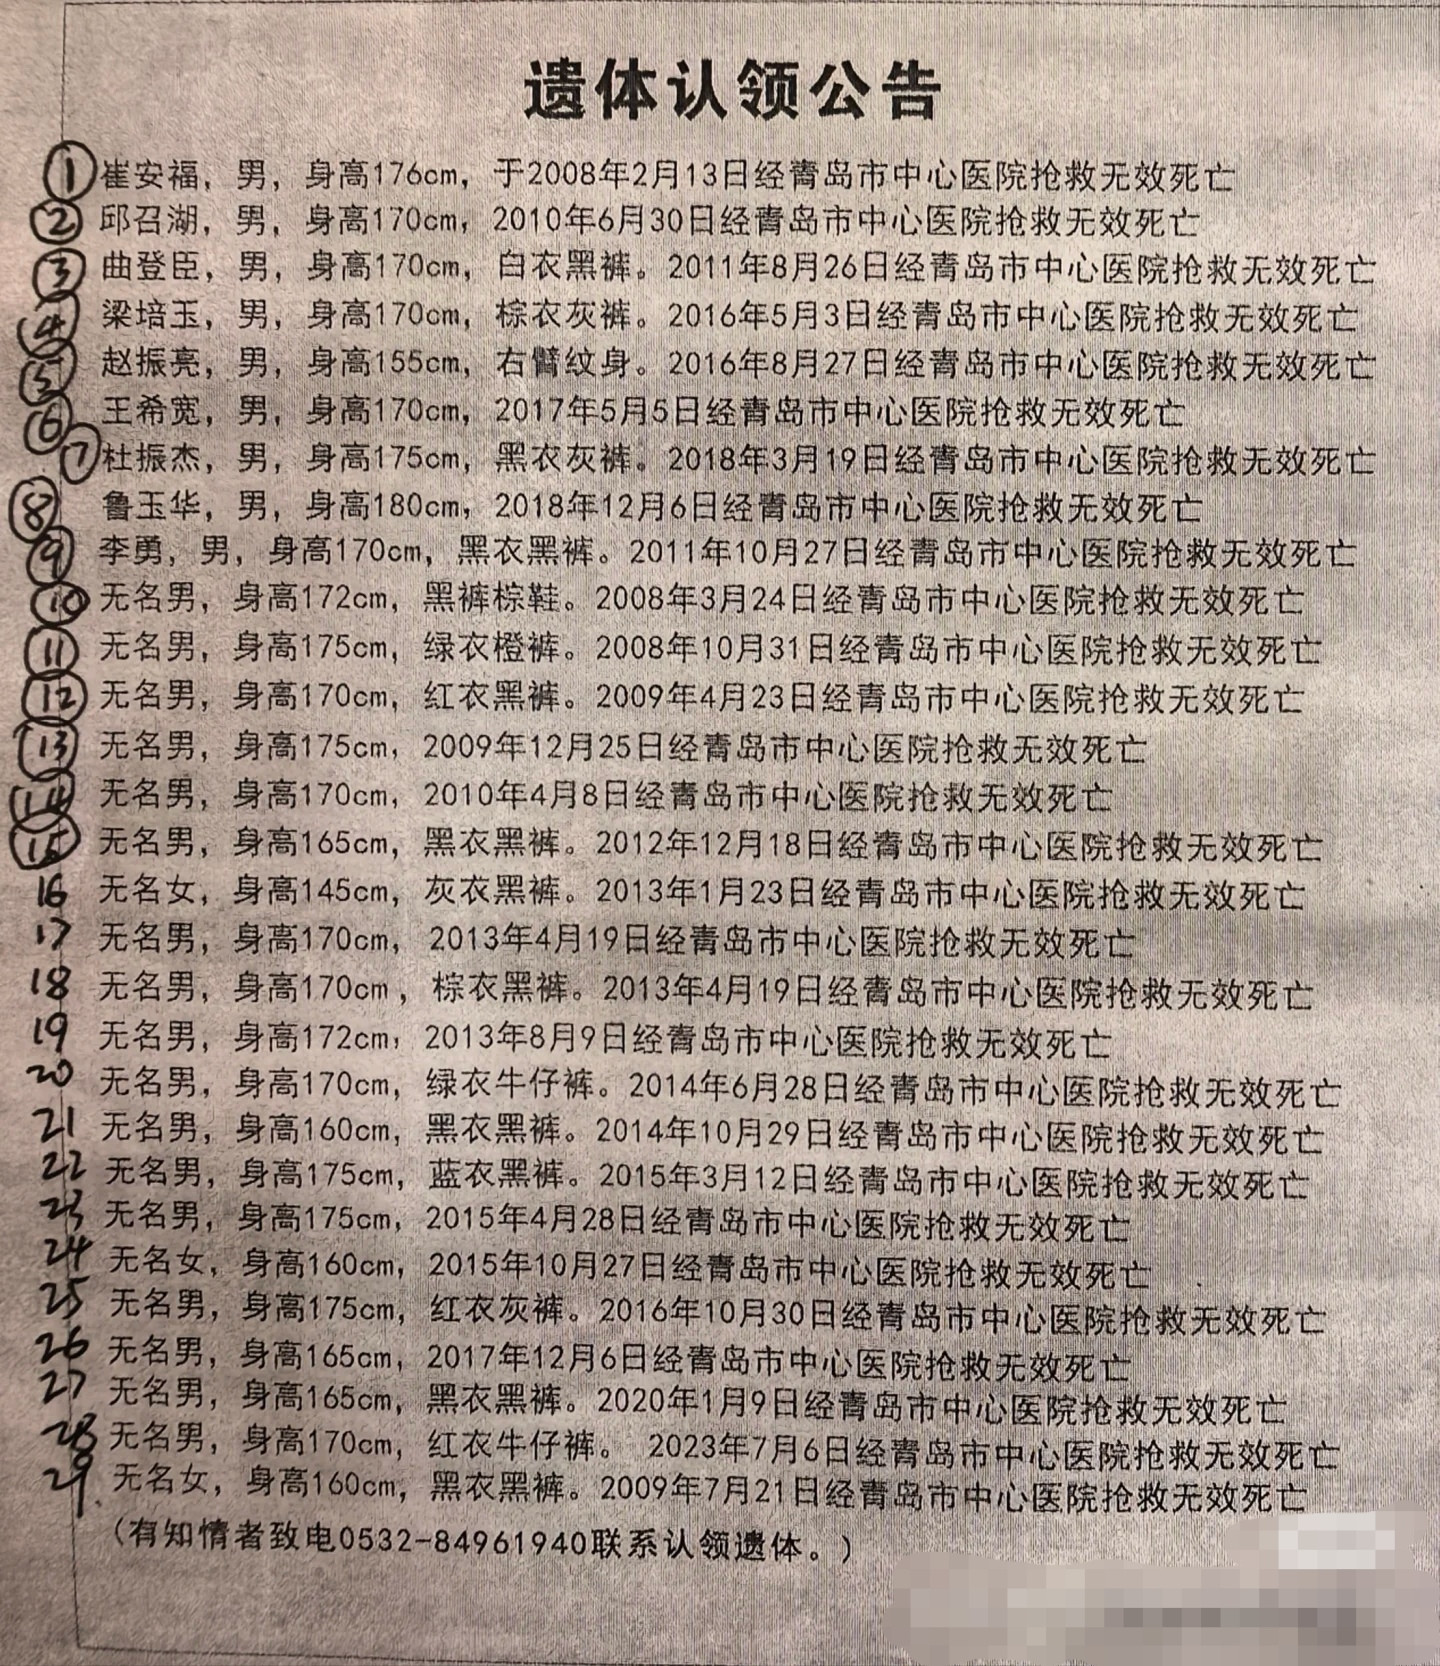 遗体认领公告
① 崔安福，男，身高176cm，于2008年2月13日经青岛市中心医院抢救无效死亡
② 邱召湖，男，身高170cm，2010年6月30日经青岛市中心医院抢救无效死亡
③ 曲登臣，男，身高170cm，白衣黑裤。2011年8月26日经青岛市中心医院抢救无效死亡
④ 梁培玉，男，身高170cm，棕衣灰裤。2016年5月3日经青岛市中心医院抢救无效死亡
⑤ 赵振亮，男，身高155cm，右臂纹身。2016年8月27日经青岛市中心医院抢救无效死亡
⑥ 王希宽，男，身高170cm，2017年5月5日经青岛市中心医院抢救无效死亡
⑦ 杜振杰，男，身高175cm，黑衣灰裤。2018年3月19日经青岛市中心医院抢救无效死亡
⑧ 鲁玉华，男，身高180cm，2018年12月6日经青岛市中心医院抢救无效死亡
⑨ 李勇，男，身高170cm，黑衣黑裤。2011年10月27日经青岛市中心医院抢救无效死亡
⑩ 无名男，身高172cm，黑裤棕鞋。2008年3月24日经青岛市中心医院抢救无效死亡
⑪ 无名男，身高175cm，绿衣橙裤。2008年10月31日经青岛市中心医院抢救无效死亡
⑫ 无名男，身高170cm，红衣黑裤。2009年4月23日经青岛市中心医院抢救无效死亡
⑬ 无名男，身高175cm，2009年12月25日经青岛市中心医院抢救无效死亡
⑭ 无名男，身高170cm，2010年4月8日经青岛市中心医院抢救无效死亡
⑮ 无名男，身高165cm，黑衣黑裤。2012年12月18日经青岛市中心医院抢救无效死亡
16 无名女，身高145cm，灰衣黑裤。2013年1月23日经青岛市中心医院抢救无效死亡
17 无名男，身高170cm，2013年4月19日经青岛市中心医院抢救无效死亡
18 无名男，身高170cm，棕衣黑裤。2013年4月19日经青岛市中心医院抢救无效死亡
19 无名男，身高172cm，2013年8月9日经青岛市中心医院抢救无效死亡
20 无名男，身高170cm，绿衣牛仔裤。2014年6月28日经青岛市中心医院抢救无效死亡
21 无名男，身高160cm，黑衣黑裤。2014年10月29日经青岛市中心医院抢救无效死亡
22 无名男，身高175cm，蓝衣黑裤。2015年3月12日经青岛市中心医院抢救无效死亡
23 无名男，身高175cm，2015年4月28日经青岛市中心医院抢救无效死亡
24 无名女，身高160cm，2015年10月27日经青岛市中心医院抢救无效死亡
25 无名男，身高175cm，红衣灰裤。2016年10月30日经青岛市中心医院抢救无效死亡
26 无名男，身高165cm，2017年12月6日经青岛市中心医院抢救无效死亡
27 无名男，身高165cm，黑衣黑裤。2020年1月9日经青岛市中心医院抢救无效死亡
28 无名男，身高170cm，红衣牛仔裤。 2023年7月6日经青岛市中心医院抢救无效死亡
29. 无名女，身高160cm，黑衣黑裤。2009年7月21日经青岛市中心医院抢救无效死亡
（有知情者致电0532-84961940联系认领遗体。）